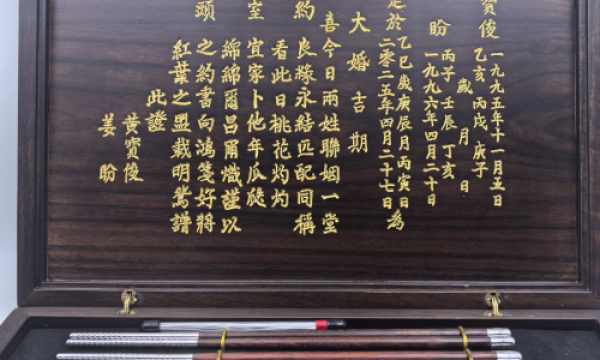 一九九五年十一月五日
寶俊
乙亥 丙戌 庚子
歲 月 日
盼
丙子 壬辰 丁亥
一九九六年四月二十日
定於乙巳歲庚辰月丙寅日為
二零二五年四月二十七日
大婚吉期
喜今日兩姓聯姻一堂
約良緣永結匹配同稱
看此日桃花灼灼
室宜家卜他年瓜瓞
綿綿爾昌爾熾謹以
頭之約書向鴻箋好將
紅葉之盟載明鴛譜
此證
黃寶俊
姜盼